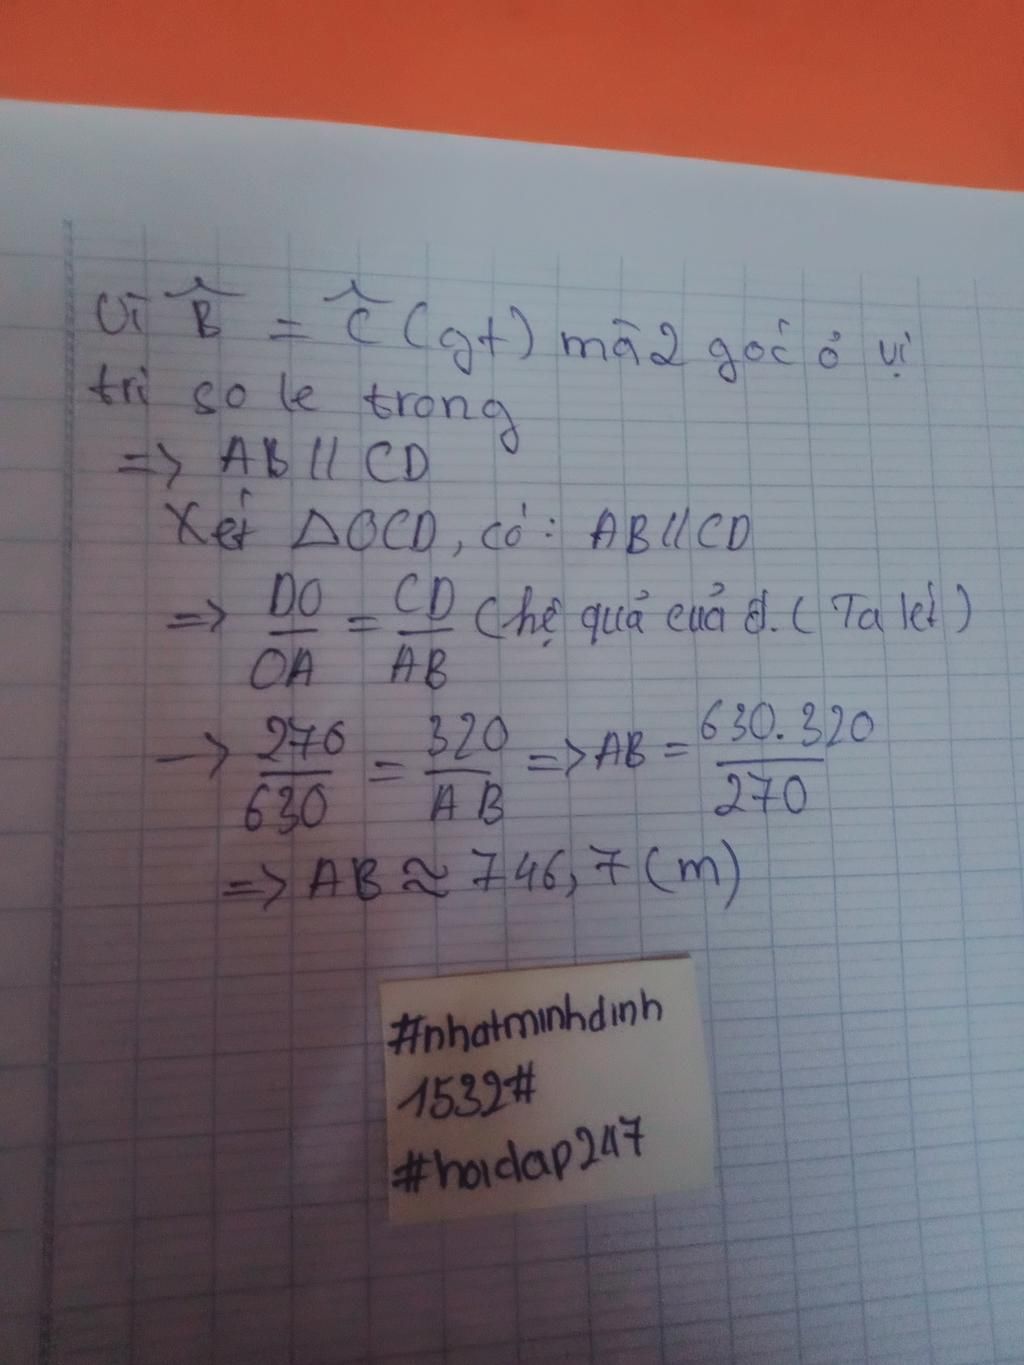 Vì B̂ = Ĉ (gt) mà 2 góc ở vị
trí so le trong
=> AB // CD
Xét ΔOCD, có: AB // CD
=> DO/OA = CD/AB (hệ quả của đ.( Ta lét)
-> 276/630 = 320/AB => AB = 630.320/270
=> AB ≈ 746,7 (m)
#nhatminhdinh
1532#
#hoidap247